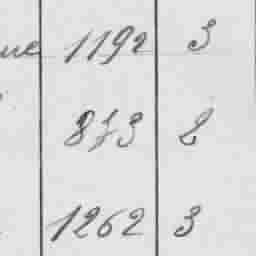 ue 1192 3
873 2
1262 3